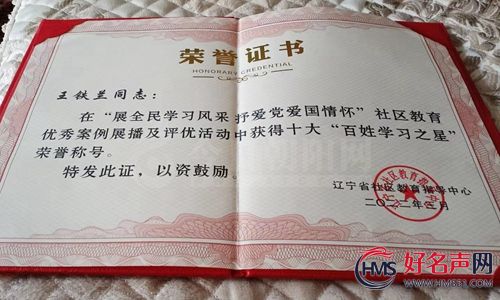 荣誉证书
HONORARY CREDENTIAL
王铁兰同志：
在“展全民学习风采 抒爱党爱国情怀”社区教育
优秀案例展播及评优活动中获得十大“百姓学习之星”
荣誉称号。
特发此证，以资鼓励。
辽宁省社区教育指导中心
HMS 好名声网
WWW.HMS31.COM